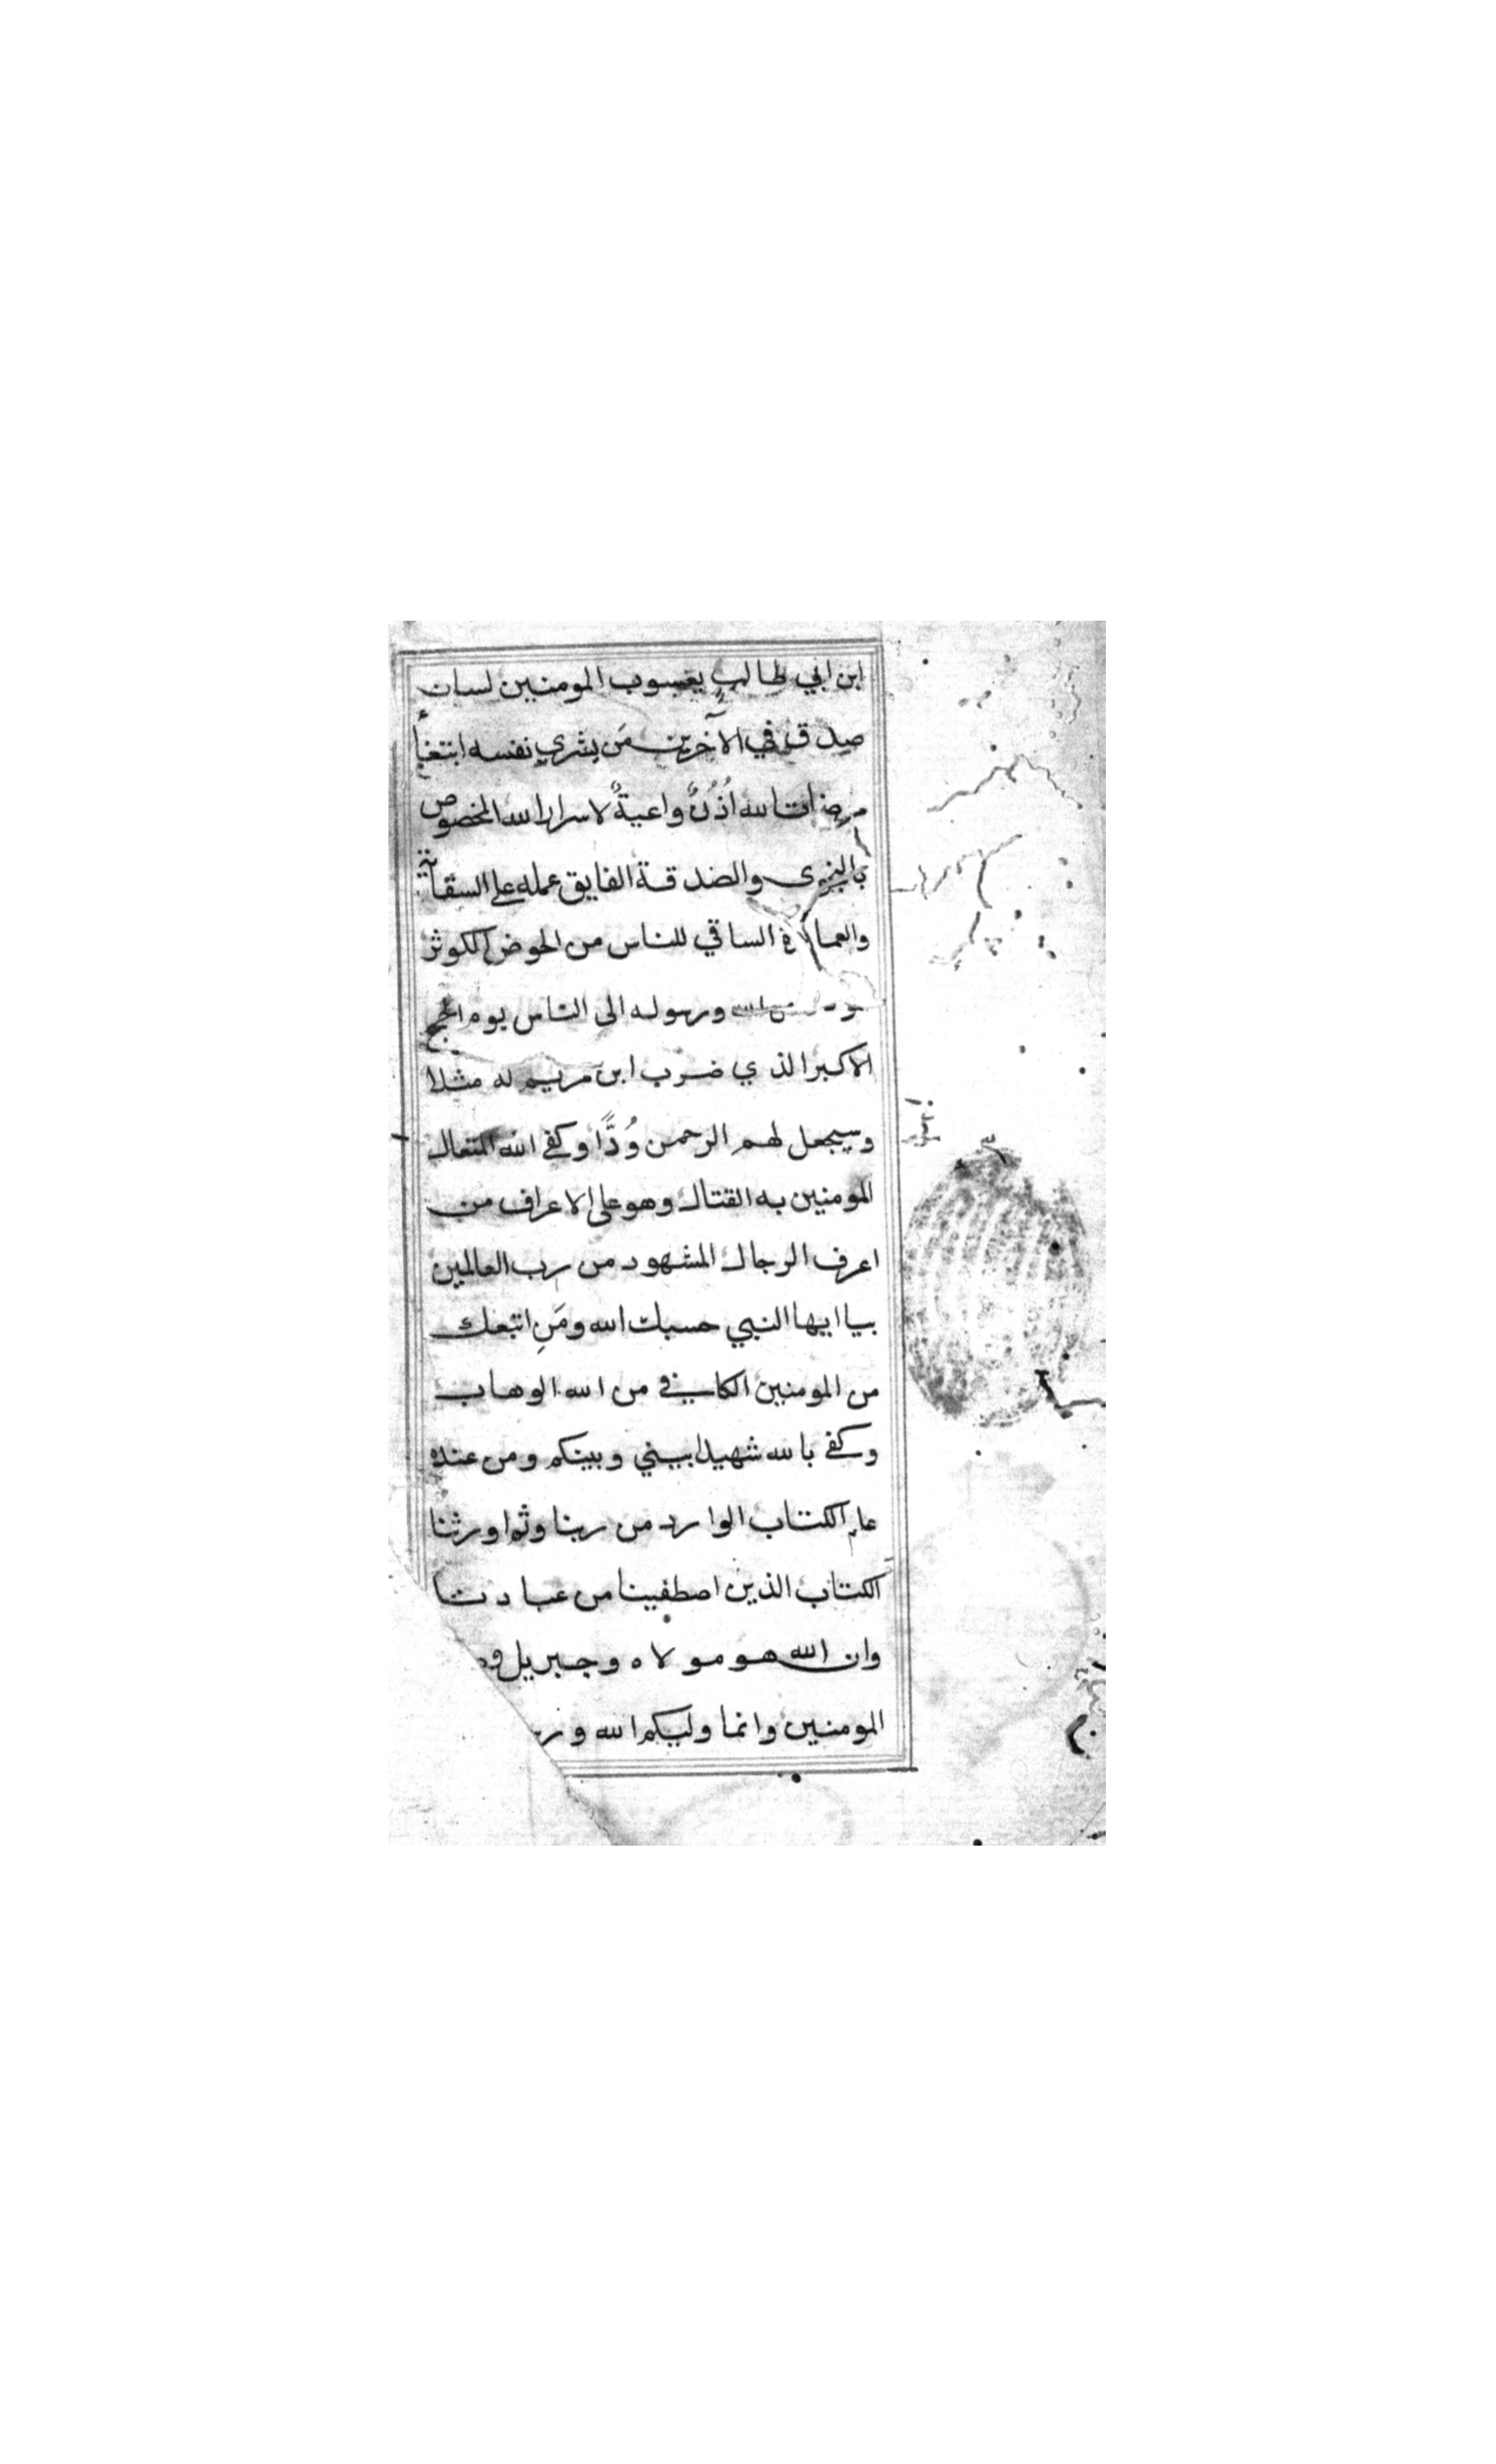 ابن ابي طالبٍ يعسوب المومنين لسان
صدق في الآخرين مَن يشري نفسه ابتغاء
مرضات الله اُذُنٌ واعيةٌ لاسرار الله المخصوص
بالنجوى والصدقة الفايق عمله على السقاية
والعمارة الساقي للناس من الحوض الكوثر
الله ورسوله الى الناس يوم الحج
الاكبر الذي ضرب ابن مريم له مثلا
وسيجعل لهم الرحمن وُدًّا وكفى الله المتعال
المومنين به القتال وهو على الاعراف من
اعرف الرجال المشهود من رب العالمين
بيا ايها النبي حسبك الله ومَنِ اتبعك
من المومنين الكافي من الله الوهاب
وكفى بالله شهيدا بيني وبينكم ومن عنده
علم الكتاب الوارد من ربنا وثم اورثنا
الكتاب الذين اصطفينا من عبادنا
وان الله هو مولاه وجبريل
المومنين وانما وليكم الله